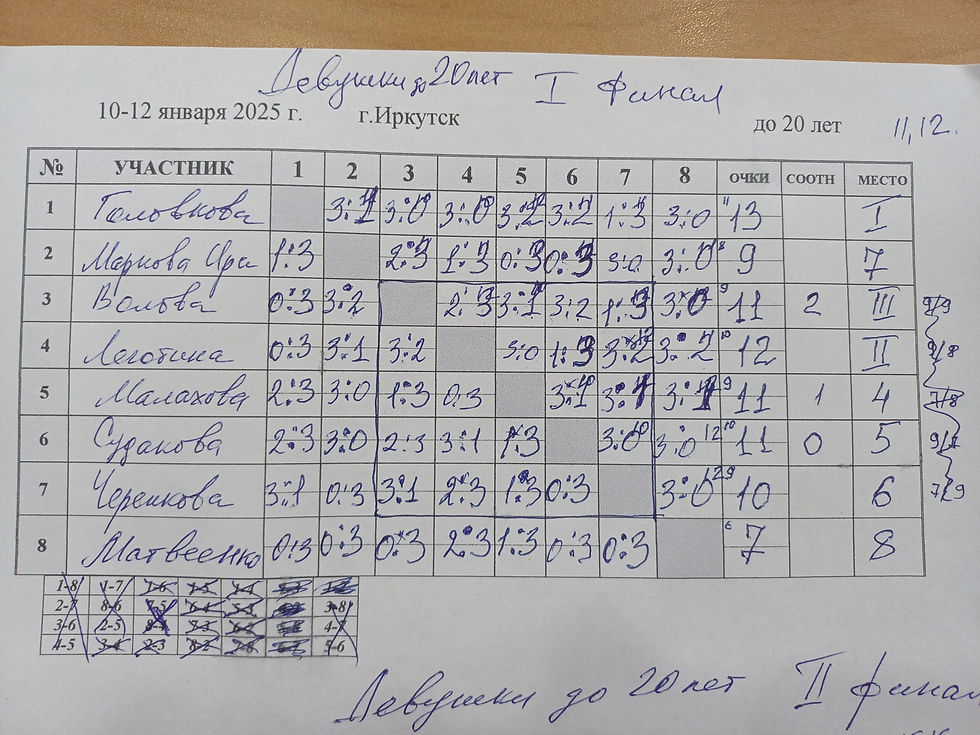 Девушки до 20 лет I Финал
10-12 января 2025 г. г.Иркутск до 20 лет 11,12.
№ УЧАСТНИК 1 2 3 4 5 6 7 8 ОЧКИ СООТН МЕСТО
1 Головкова 3:1 3:0 3:0 3:2 3:2 1:3 3:0 13 I
2 Маркова Ира 1:3 2:3 1:3 0:3 0:3 3:0 3:0 9 7
3 Волова 0:3 3:2 2:3 3:1 3:2 1:3 3:0 11 2 III
4 Леготина 0:3 3:1 3:2 3:0 1:3 3:2 3:2 12 II
5 Малахова 2:3 3:0 1:3 0:3 3:1 3:1 3:1 11 1 4
6 Судакова 2:3 3:0 2:3 3:1 1:3 3:0 3:0 11 0 5
7 Черепкова 3:1 0:3 3:1 2:3 1:3 0:3 3:0 10 6
8 Матвеенко 0:3 0:3 0:3 2:3 1:3 0:3 0:3 7 8
1-8 1-7 1-6 1-5 1-4
2-7 8-6 7-5 6-4 5-3 3-8
3-6 2-5 8-4 7-3 6-2 4-7
4-5 3-4 2-3 8-2 7-8 5-6
Девушки до 20 лет II финал